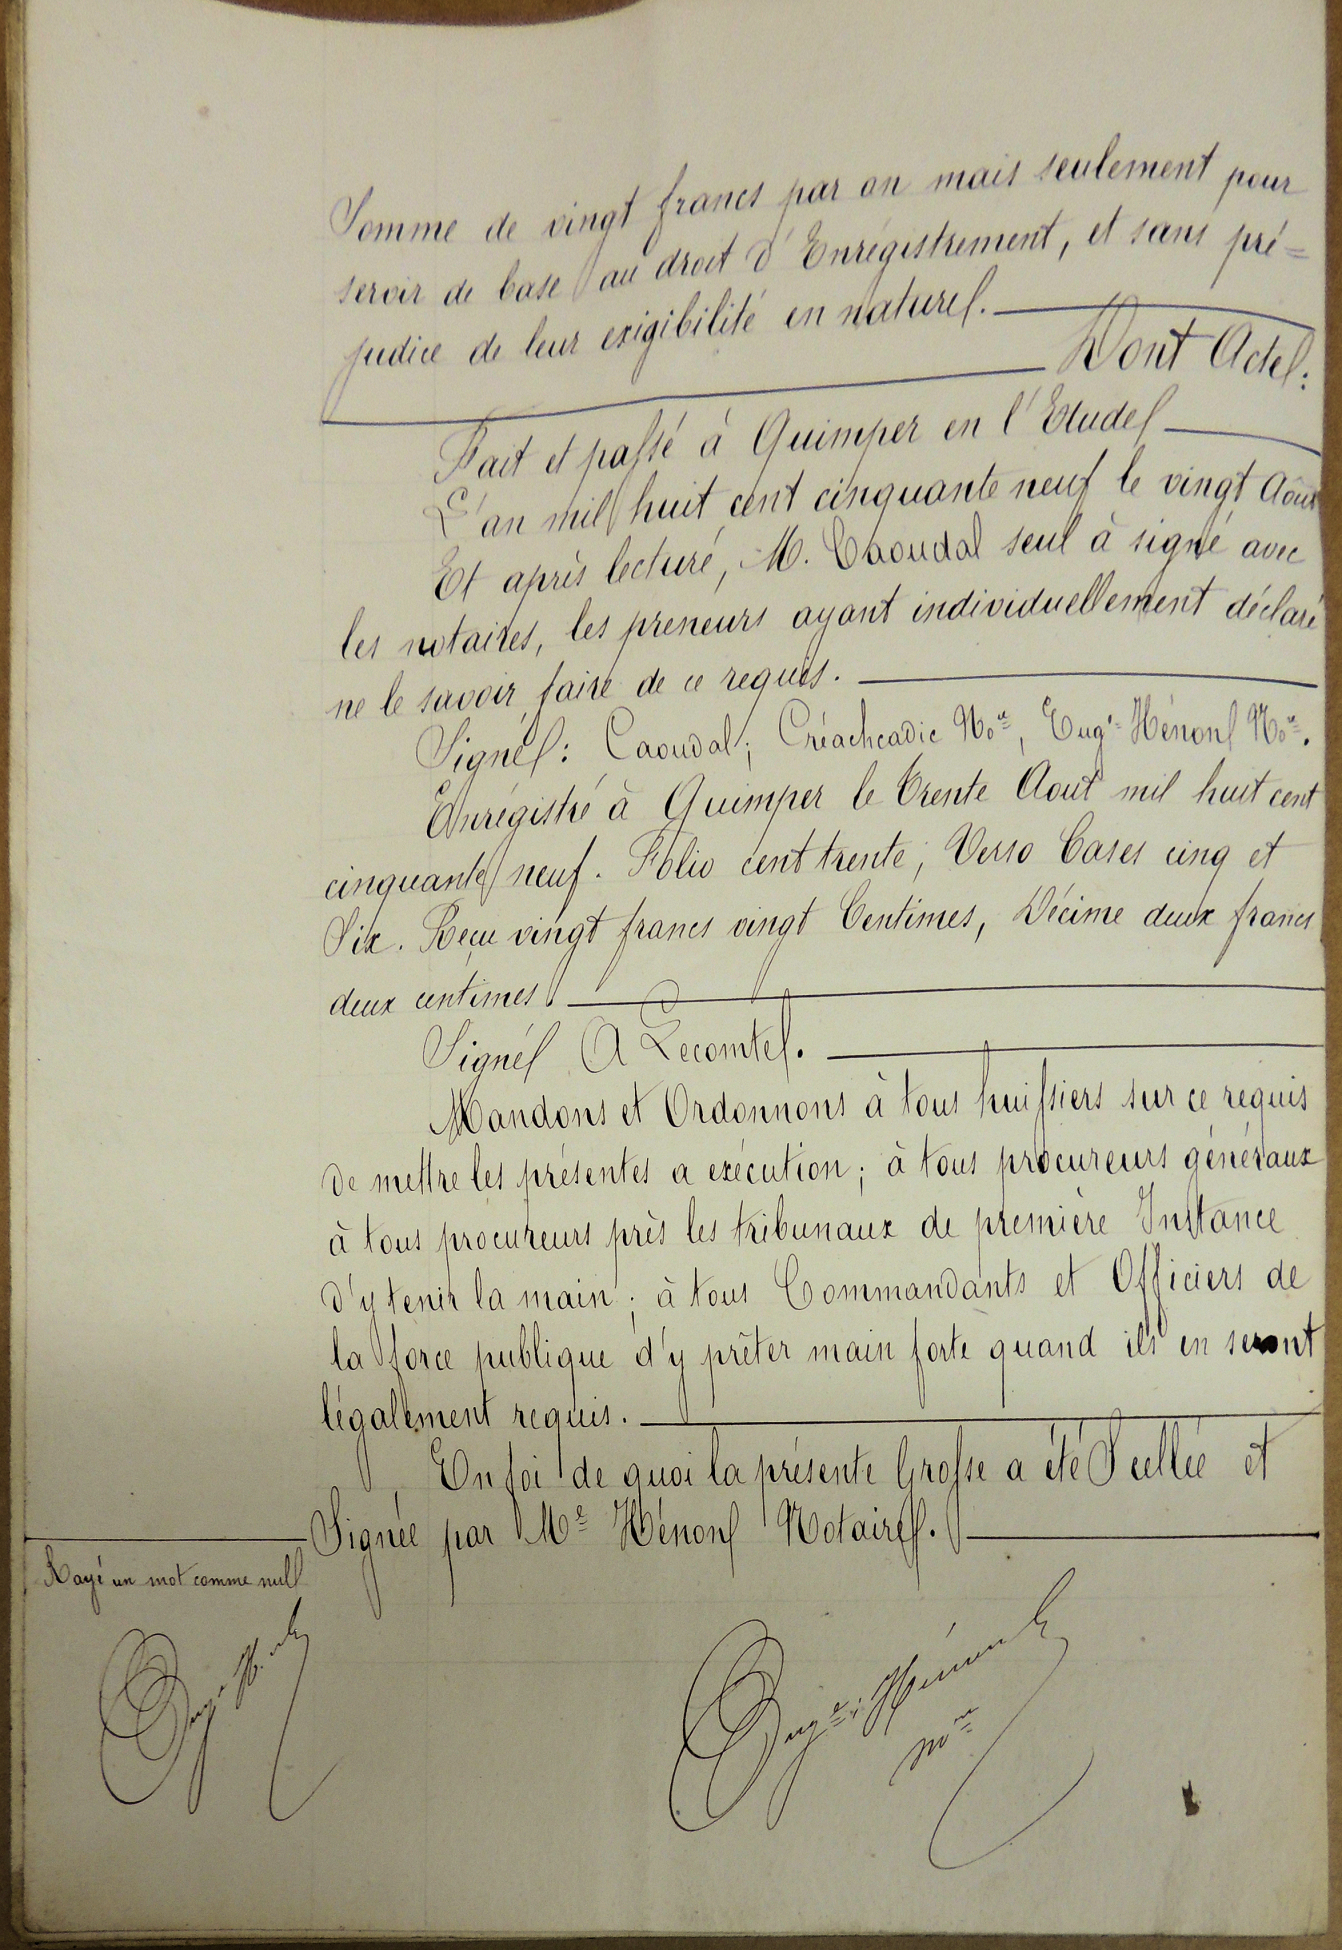 Somme de vingt francs par an mais seulement pour
servir de base au droit d'Enrégistrement, et sans pré=
judice de leur exigibilité en nature.
Dont Acte:
Fait et passé à Quimper en l'Etude
L'an mil huit cent cinquante neuf le vingt Aout
Et après lecturé, M. Caoudal seul à signé avec
les notaires, les preneurs ayant individuellement déclaré
ne le savoir faire de ce requis.
Signé: Caoudal; Créachcadic No.re, Eug.e Hénon No.re.
Enrégistré à Quimper le trente Aout mil huit cent
cinquante neuf. Folio cent trente, Verso Cases cinq et
Six. Reçu vingt francs vingt Centimes, Décime deux francs
deux centimes.
Signé A Lecomte.
Mandons et Ordonnons à tous huissiers sur ce requis
de mettre les présentes a exécution; à tous procureurs généraux
à tous procureurs près les tribunaux de première Instance
d'y tenir la main; à tous Commandants et Officiers de
la force publique d'y prêter main forte quand ils en seront
légalement requis.
En foi de quoi la présente Grosse a été Scellée et
Signée par Me Hénon Notaire.
Rayé un mot comme nul
Eug.e Hénon
no.re